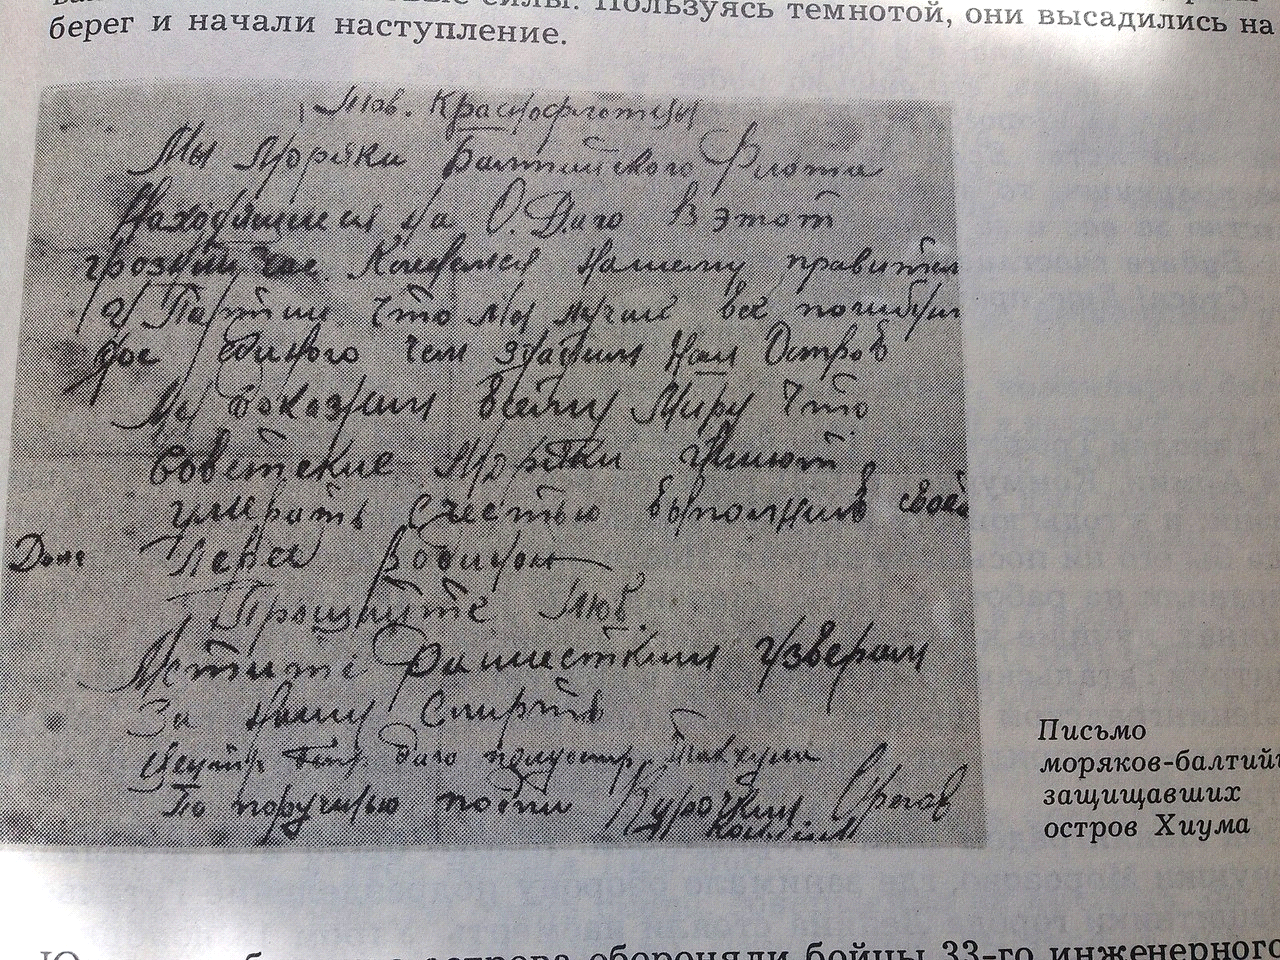 силы. Пользуясь темнотой, они высадились на
берег и начали наступление.
Тов. Краснофлотцы
Мы Моряки Балтийского Флота
Находящиеся на О. Даго в этот
грозный час Клянемся нашему правител
и Партии что мы лучше все погибнем
до единого чем здадим Наш Остров
Мы докажем всему Миру что
советские Моряки умеют
умерать с честью выполнив свой
Долг
Прощайте тов.
Мстите фашистким узверам
За нашу Смирть
По поручению Курочкин. Орлов
Письмо
моряков-балтий
защищавших
остров Хиума
острова обороняли бойцы 33-го инженерного